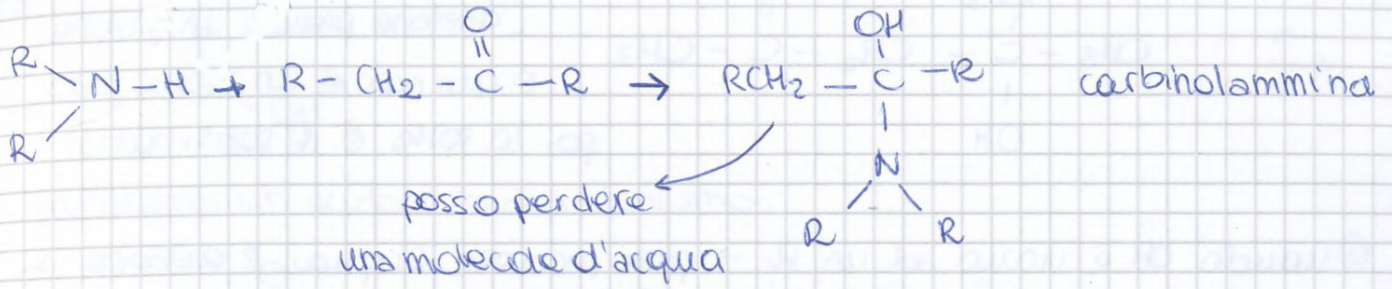 R
R
N – H + R – CH₂ – C – R → RCH₂ – C – R carbinolammina
O
||
OH
N
R R
posso perdere
una molecola d'acqua